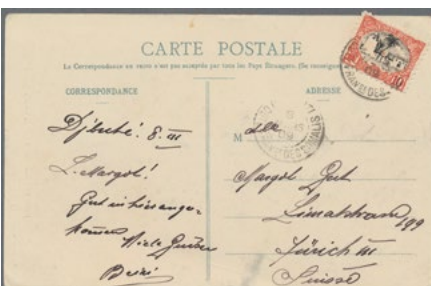 CARTE POSTALE
La Correspondance au verso n'est pas acceptée par tous les Pays Étrangers. (Se renseigner
CORRESPONDANCE
ADRESSE
Djibuti. 8. III
L. Margot!
Gut in hier ange-
kommen
Viele Grüsse
M
Margot Gut
Limatstrasse 199
Zürich III
Suisse
10